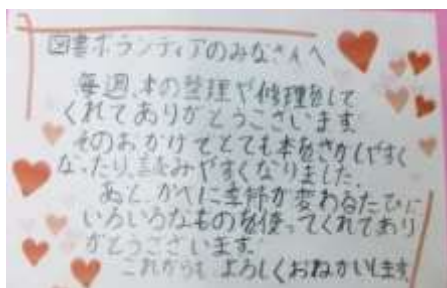 図書ボランティアのみなさんへ
毎週、本の整理や修理をして
くれてありがとうございます。
そのおかげでとても本をさがしやすく
なったり、読みやすくなりました。
あと、かべに季節が変わるたびに
いろいろなものを使ってくれてあり
がとうございます。
これからも よろしくおねがいします